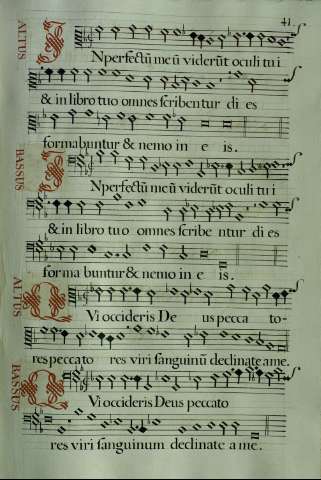 41
ALTUS
Nperfectū meū viderūt oculi tu i
& in libro tuo omnes scribentur di es
formabuntur & nemo in e is.
BASSUS
Nperfectū meū viderūt oculi tu i
& in libro tuo omnes scribe ntur di es
forma buntur & nemo in e is.
ALTUS
Vi occideris De us pecca to-
res peccato res viri sanguinū declinate a me.
BASSUS
Vi occideris Deus peccato
res viri sanguinum declinate a me.